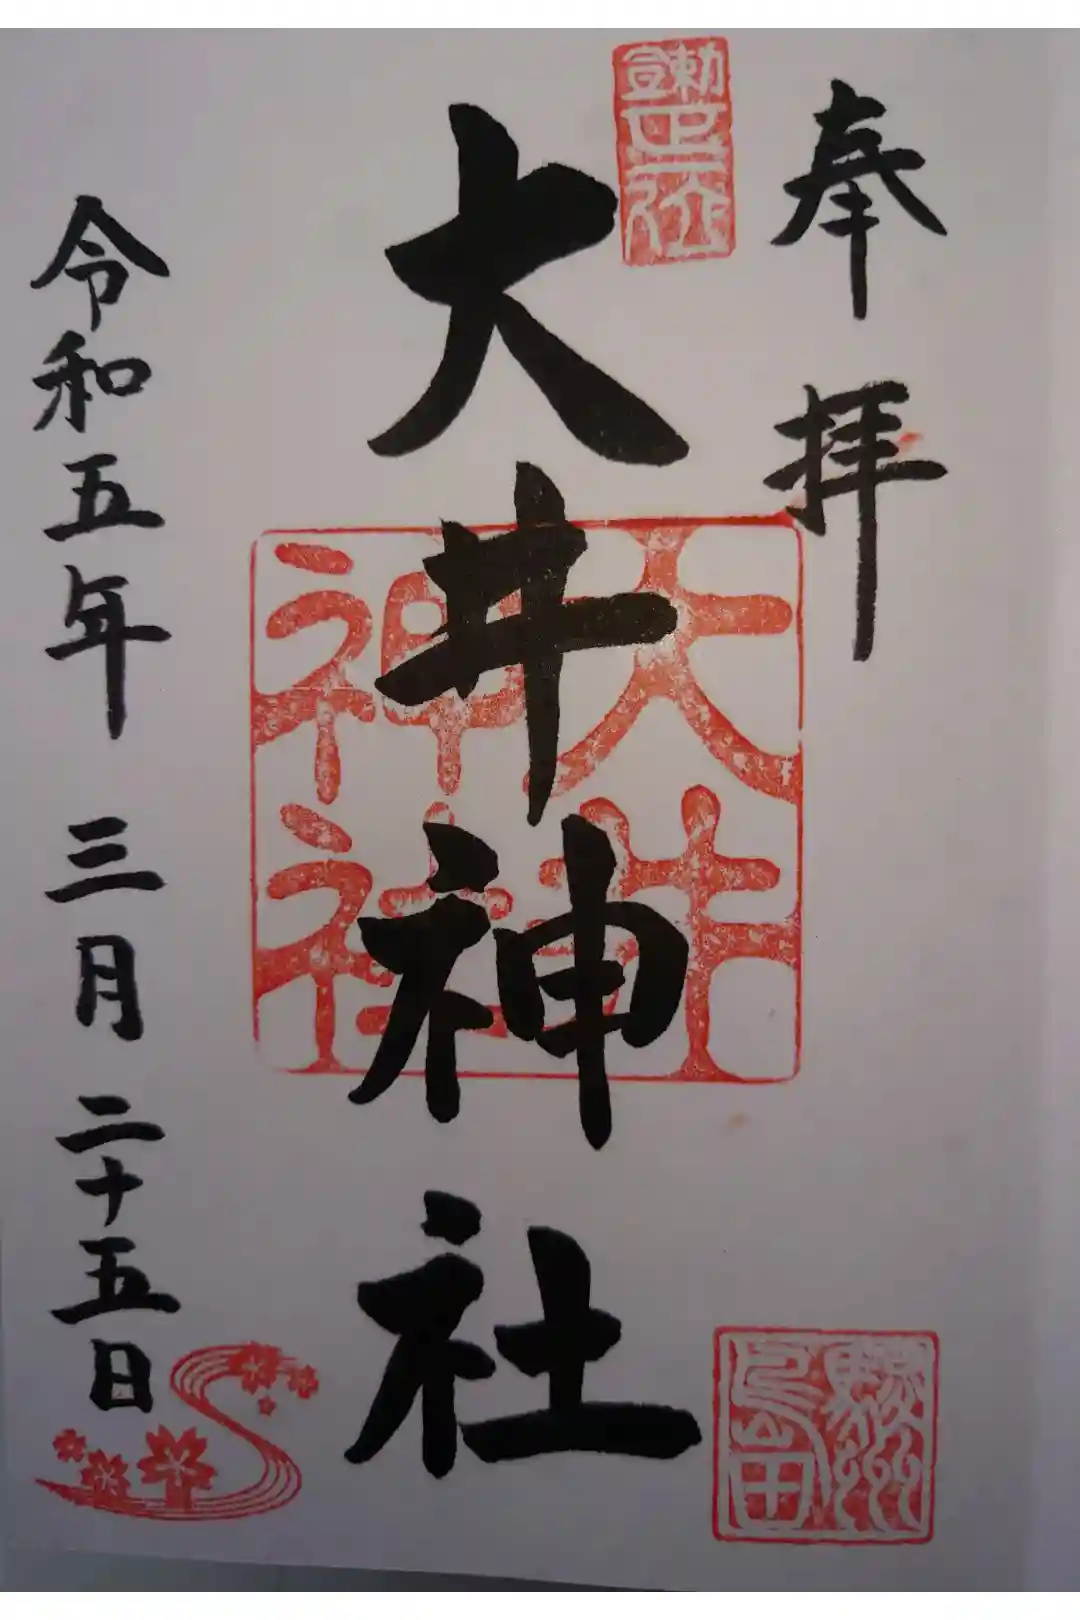 奉拝
勅宣正一位
大井神社
大井神社
令和五年 三月 二十五日